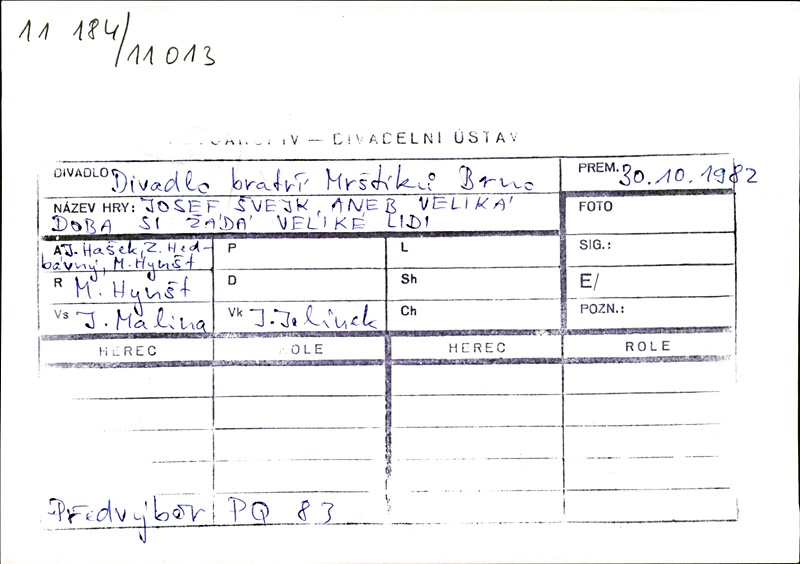 11 184/11 013
— DIVADELNÍ ÚSTAV
DIVADLO Divadlo bratří Mrštíků Brno
PREM. 30.10.1982
NÁZEV HRY: JOSEF ŠVEJK, ANEB VELIKÁ
DOBA SI ŽÁDÁ VELIKÉ LIDI
FOTO
A J. Hašek, Z. Hed-
bávný, M. Hynšt
P
L
SIG.:
R M. Hynšt
D
Sh
E/
Vs J. Malina
Vk J. Jelínek
Ch
POZN.:
HEREC
ROLE
HEREC
ROLE
Předvýběr PQ 83